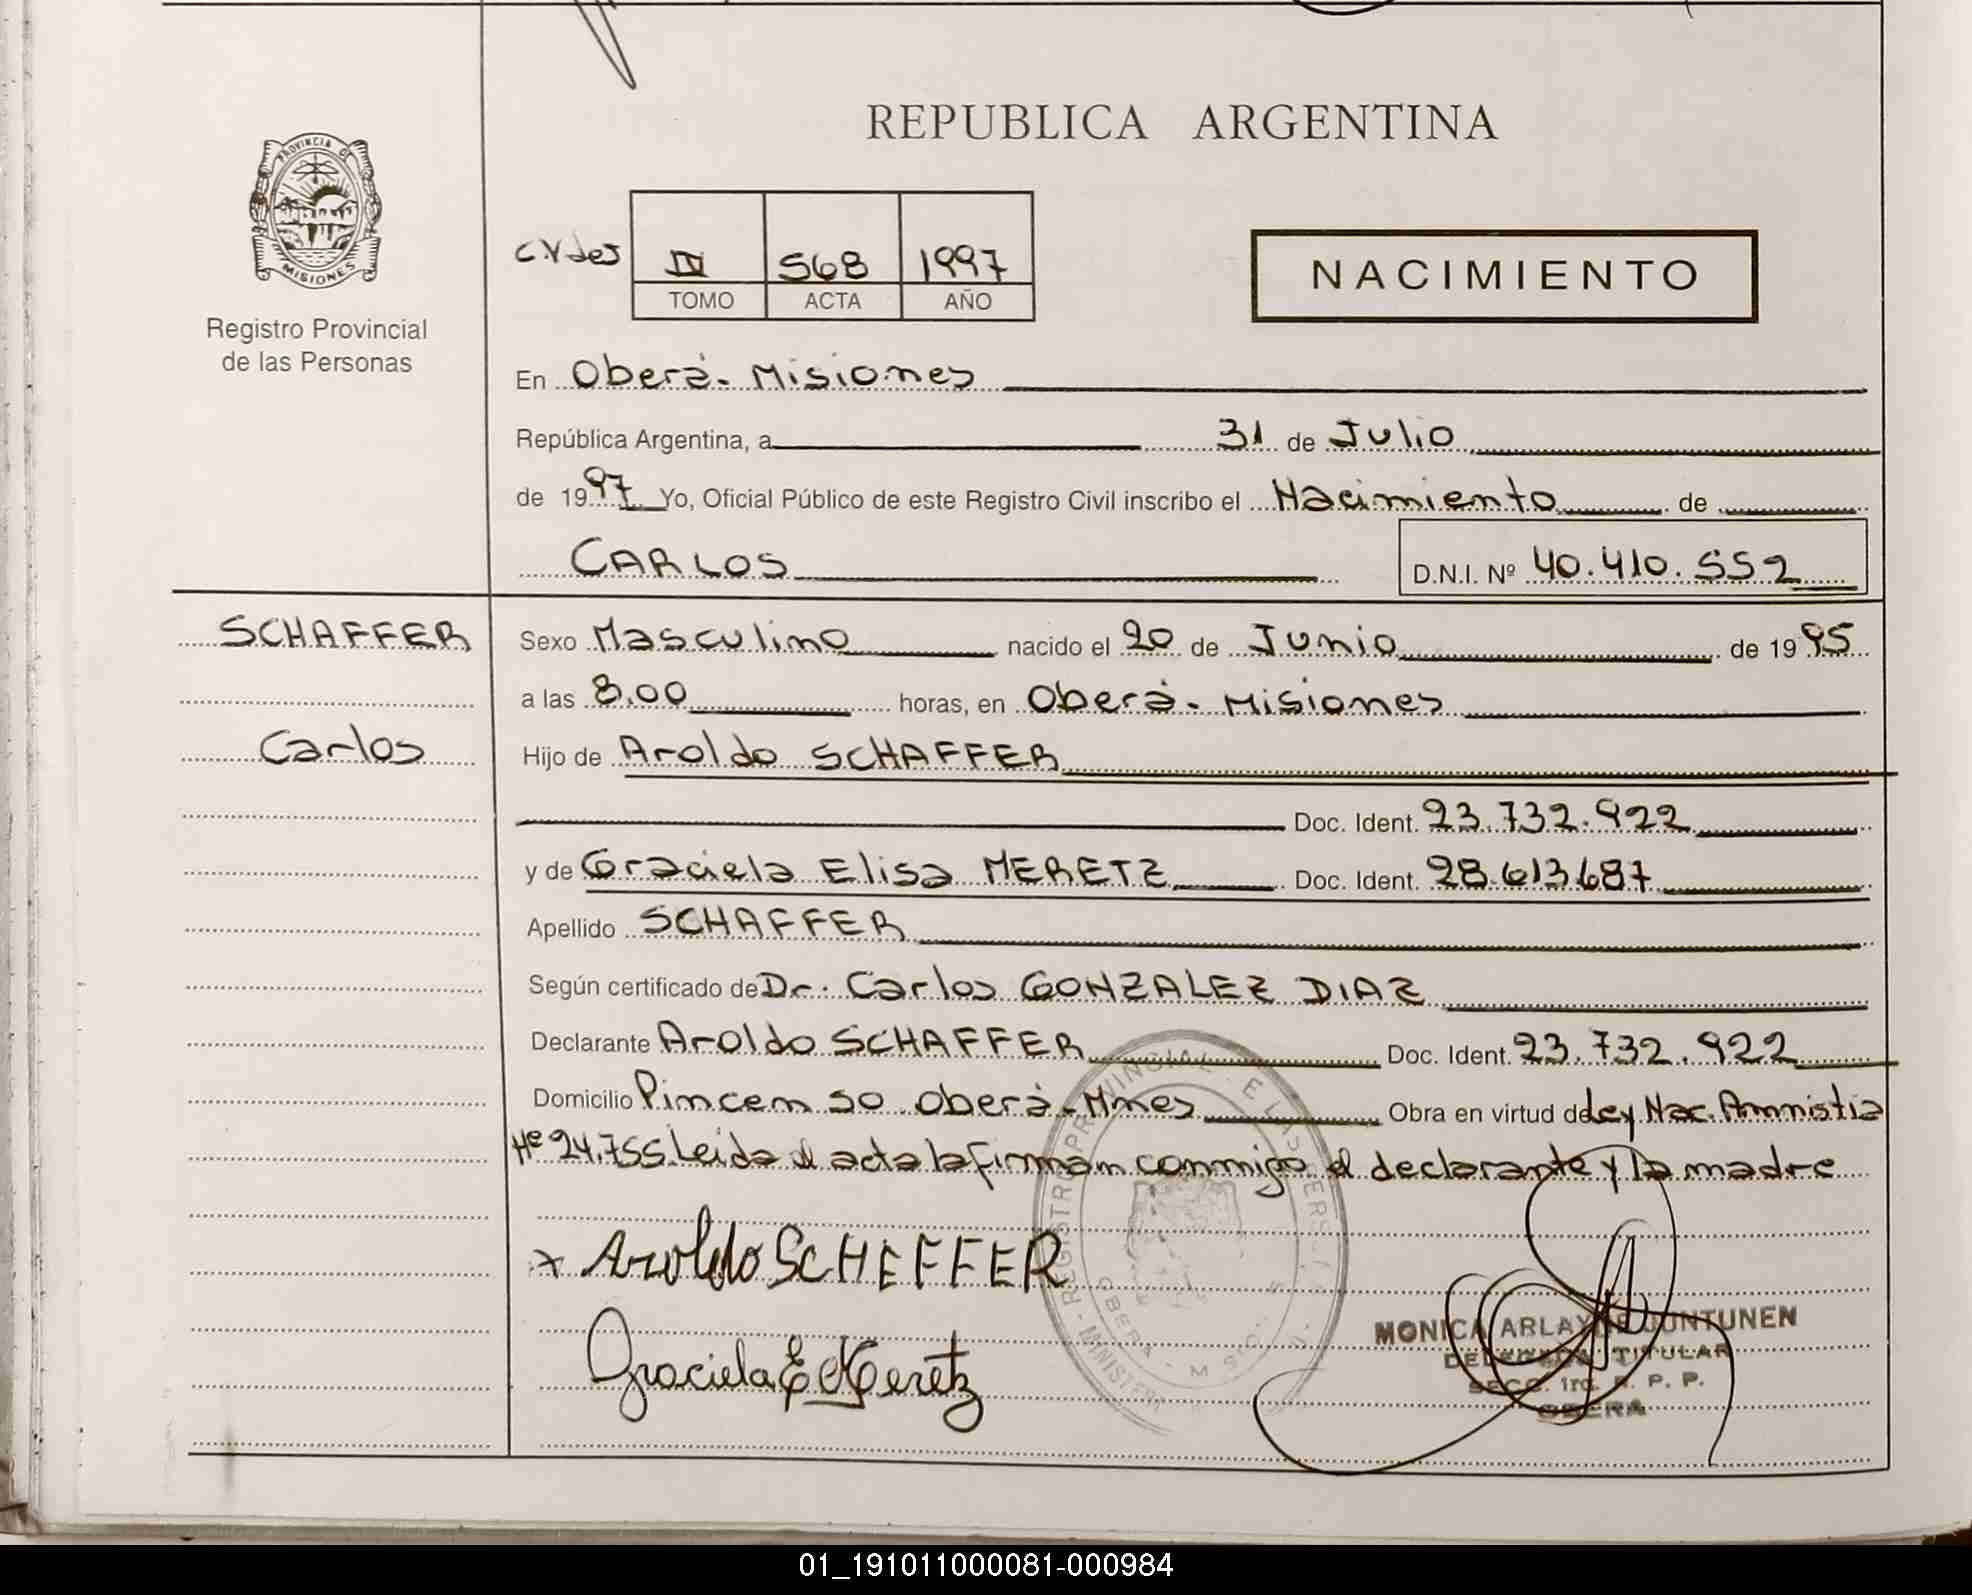 REPUBLICA ARGENTINA
PROVINCIA DE
MISIONES
Registro Provincial
de las Personas
IV 568 1997
TOMO ACTA AÑO
NACIMIENTO
En Oberá - Misiones
República Argentina, a 31 de Julio
de 1997 Yo, Oficial Público de este Registro Civil inscribo el Nacimiento de
CARLOS D.N.I. Nº 40.410.552
SCHAFFER
Carlos
Sexo Masculino nacido el 20 de Junio de 1995
a las 8.00 horas, en Oberá - Misiones
Hijo de Aroldo SCHAFFER
Doc. Ident. 23.732.922
y de Graciela Elisa MERETZ Doc. Ident. 28.613.687
Apellido SCHAFFER
Según certificado de Dr. Carlos GONZALEZ DIAZ
Declarante Aroldo SCHAFFER Doc. Ident. 23.732.922
Domicilio Pincen 50 Oberá - Mnes Obra en virtud de Ley Nac. Amnistia
Nº 24.755 Leida el acta la firman conmigo el declarante y la madre
x Aroldo SCHEFFER
Graciela E Meretz
MONICA ARLAY DE JUNTUNEN
DELEGADA TITULAR
SECC. 1ra. R. P. P.
OBERA
01_191011000081-000984